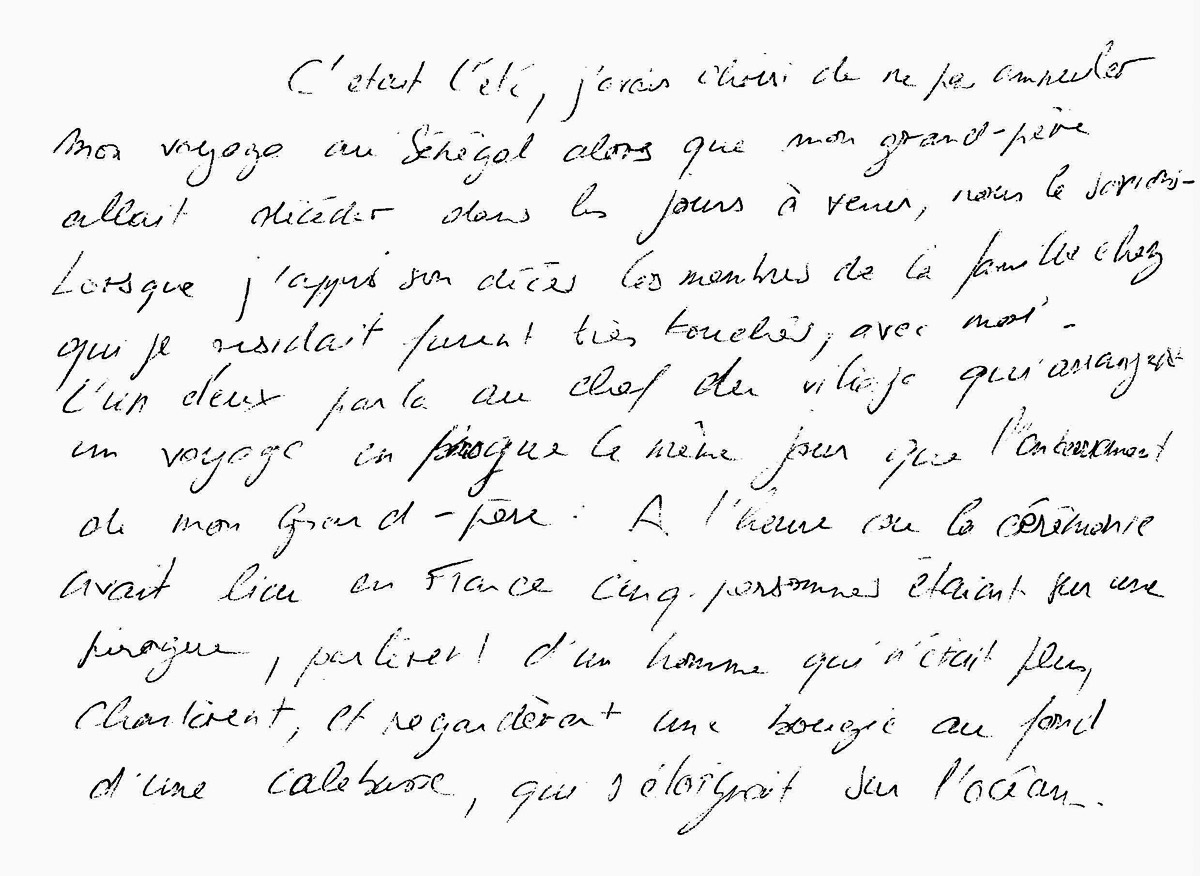 C'était l'été, j'avais choisi de ne pas annuler
mon voyage au Sénégal alors que mon grand-père
allait décéder dans les jours à venir, nous le savions-
Lorsque j'appris son décès les membres de la famille chez
qui je résidait furent très touchés, avec moi.
L'un d'eux parla au chef du village qui arrangea
un voyage en pirogue le même jour que l'enterrement
de mon Grand-père. A l'heure ou la cérémonie
avait lieu en France cinq personnes étaient sur une
pirogue, parlèrent d'un homme qui n'était plus,
chantèrent, et regardèrent une bougie au fond
d'une calebasse, qui s'éloignait sur l'océan.